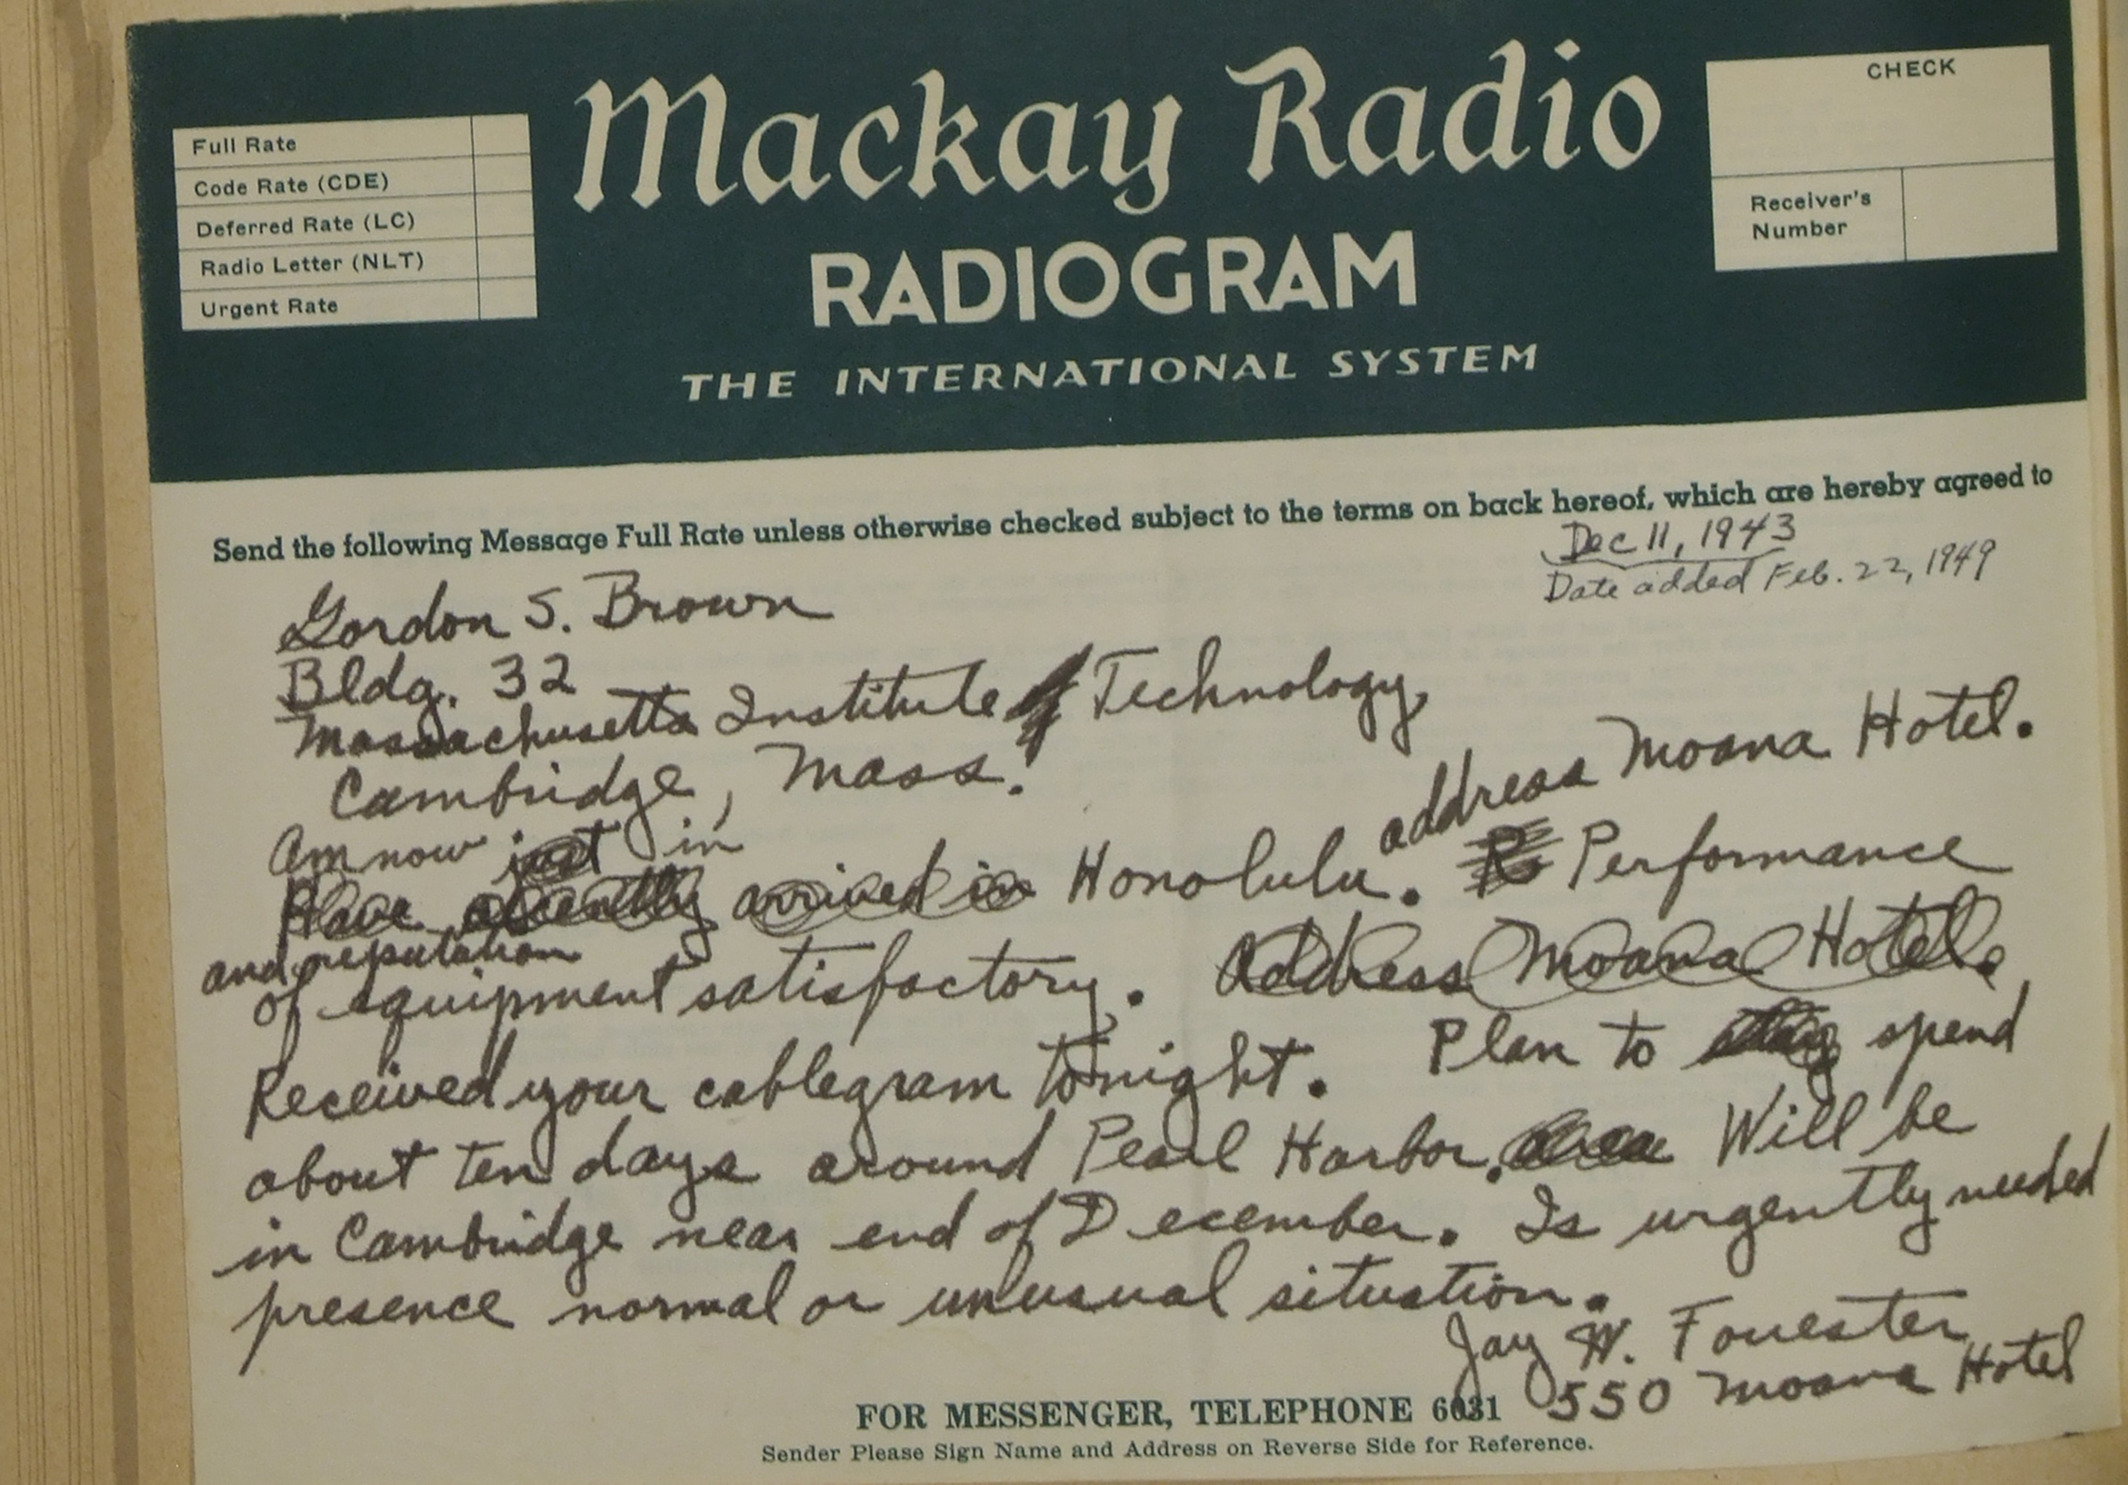 Full Rate
Code Rate (CDE)
Deferred Rate (LC)
Radio Letter (NLT)
Urgent Rate
Mackay Radio
RADIOGRAM
THE INTERNATIONAL SYSTEM
CHECK
Receiver's
Number
Send the following Message Full Rate unless otherwise checked subject to the terms on back hereof, which are hereby agreed to
Dec 11, 1943
Date added Feb. 22, 1949
Gordon S. Brown
Bldg. 32
Massachusetts Institute of Technology
Cambridge, Mass.
address Moana Hotel.
Am now just in
Have recently arrived in Honolulu. Performance
and reputation
of equipment satisfactory. Address Moana Hotel.
Received your cablegram tonight. Plan to stay spend
about ten days around Pearl Harbor. area Will be
in Cambridge near end of December. Is urgently needed
presence normal or unusual situation.
Jay W. Forrester
550 Moana Hotel
FOR MESSENGER, TELEPHONE 6031
Sender Please Sign Name and Address on Reverse Side for Reference.